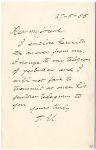 27-5-05
Dear my friend,
I enclose herewith
the answer from me,
to my telegram
of yesterday and I
will not fail to
transmit as soon his
further telegram to
you
yours truly